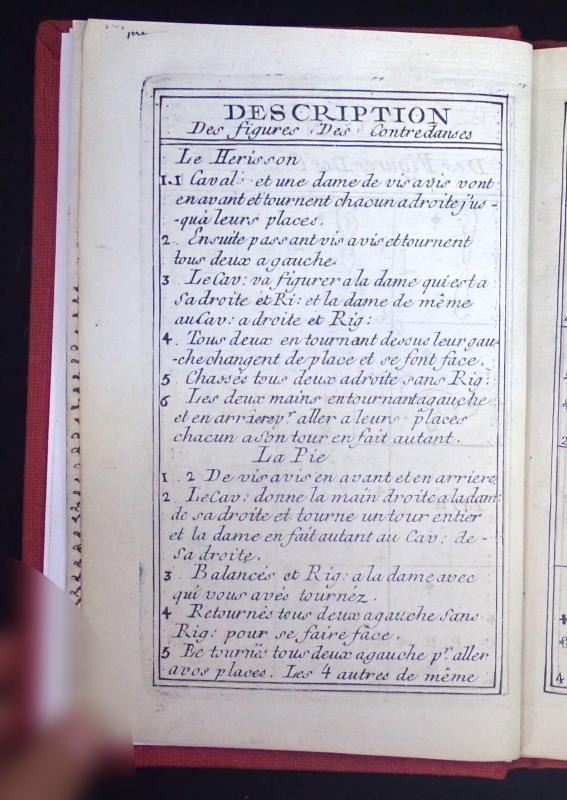 DESCRIPTION
Des figures Des Contredanses
Le Herisson
1.1 Caval: et une dame de vis avis vont
en avant et tournent chacun a droite j'us-
-qua leurs places.
2. Ensuite passant vis avis et tournent
tous deux a gauche
3 Le Cav: va figurer a la dame qui est a
sa droite et Ri: et la dame de même
au Cav: a droite et Rig:
4. Tous deux en tournant dessus leur gau-
-che changent de place et se font face.
5 Chassés tous deux a droite sans Rig:
6 Les deux mains en tournant a gauche
et en arriere pr. aller a leurs places
chacun a son tour en fait autant.
La Pie
1.2 De vis avis en avant et en arriere
2 Le Cav: donne la main droite a la dam:
de sa droite et tourne un tour entier
et la dame en fait autant au Cav: de-
sa droite.
3 Balancés et Rig: a la dame avec
qui vous avés tournéz.
4 Retournés tous deux a gauche sans
Rig: pour se faire fâce.
5 Re tournës tous deux a gauche pr. aller
a vos places. Les 4 autres de même